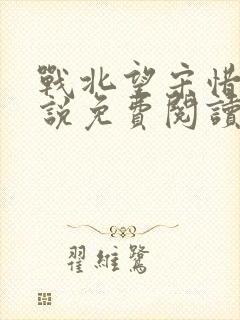 戰北望宋惜
說免費閱讀
翟維鷺